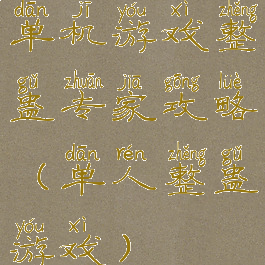 dān jī yóu xì zhěng
单机游戏整
gǔ zhuān jiā gōng lüè
蛊专家攻略
dān rén zhěng gǔ
（单人整蛊
yóu xì
游戏）